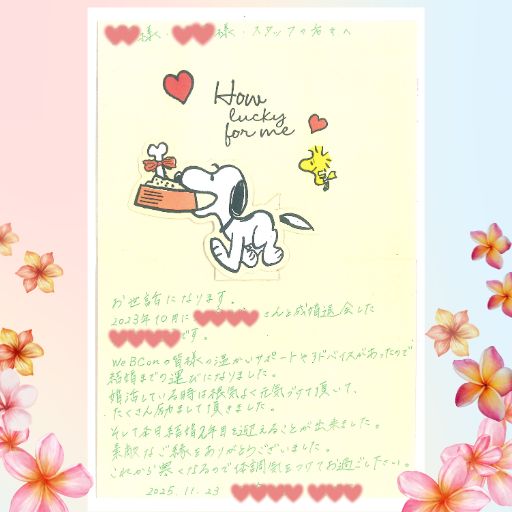 様・様・スタッフの皆さんへ
How
lucky
for me
お世話になります。
2023年10月に さんと成婚退会した
です。
WeBConの皆様の温かいサポートやアドバイスがあったので
結婚までの運びになりました。
婚活している時は根気よく元気づけて頂いて、
たくさん励まして頂きました。
そして本日結婚2年目を迎えることが出来ました。
素敵なご縁をありがとうございました。
これから寒くなるので体調気をつけてお過ごし下さい。
2025.11.23